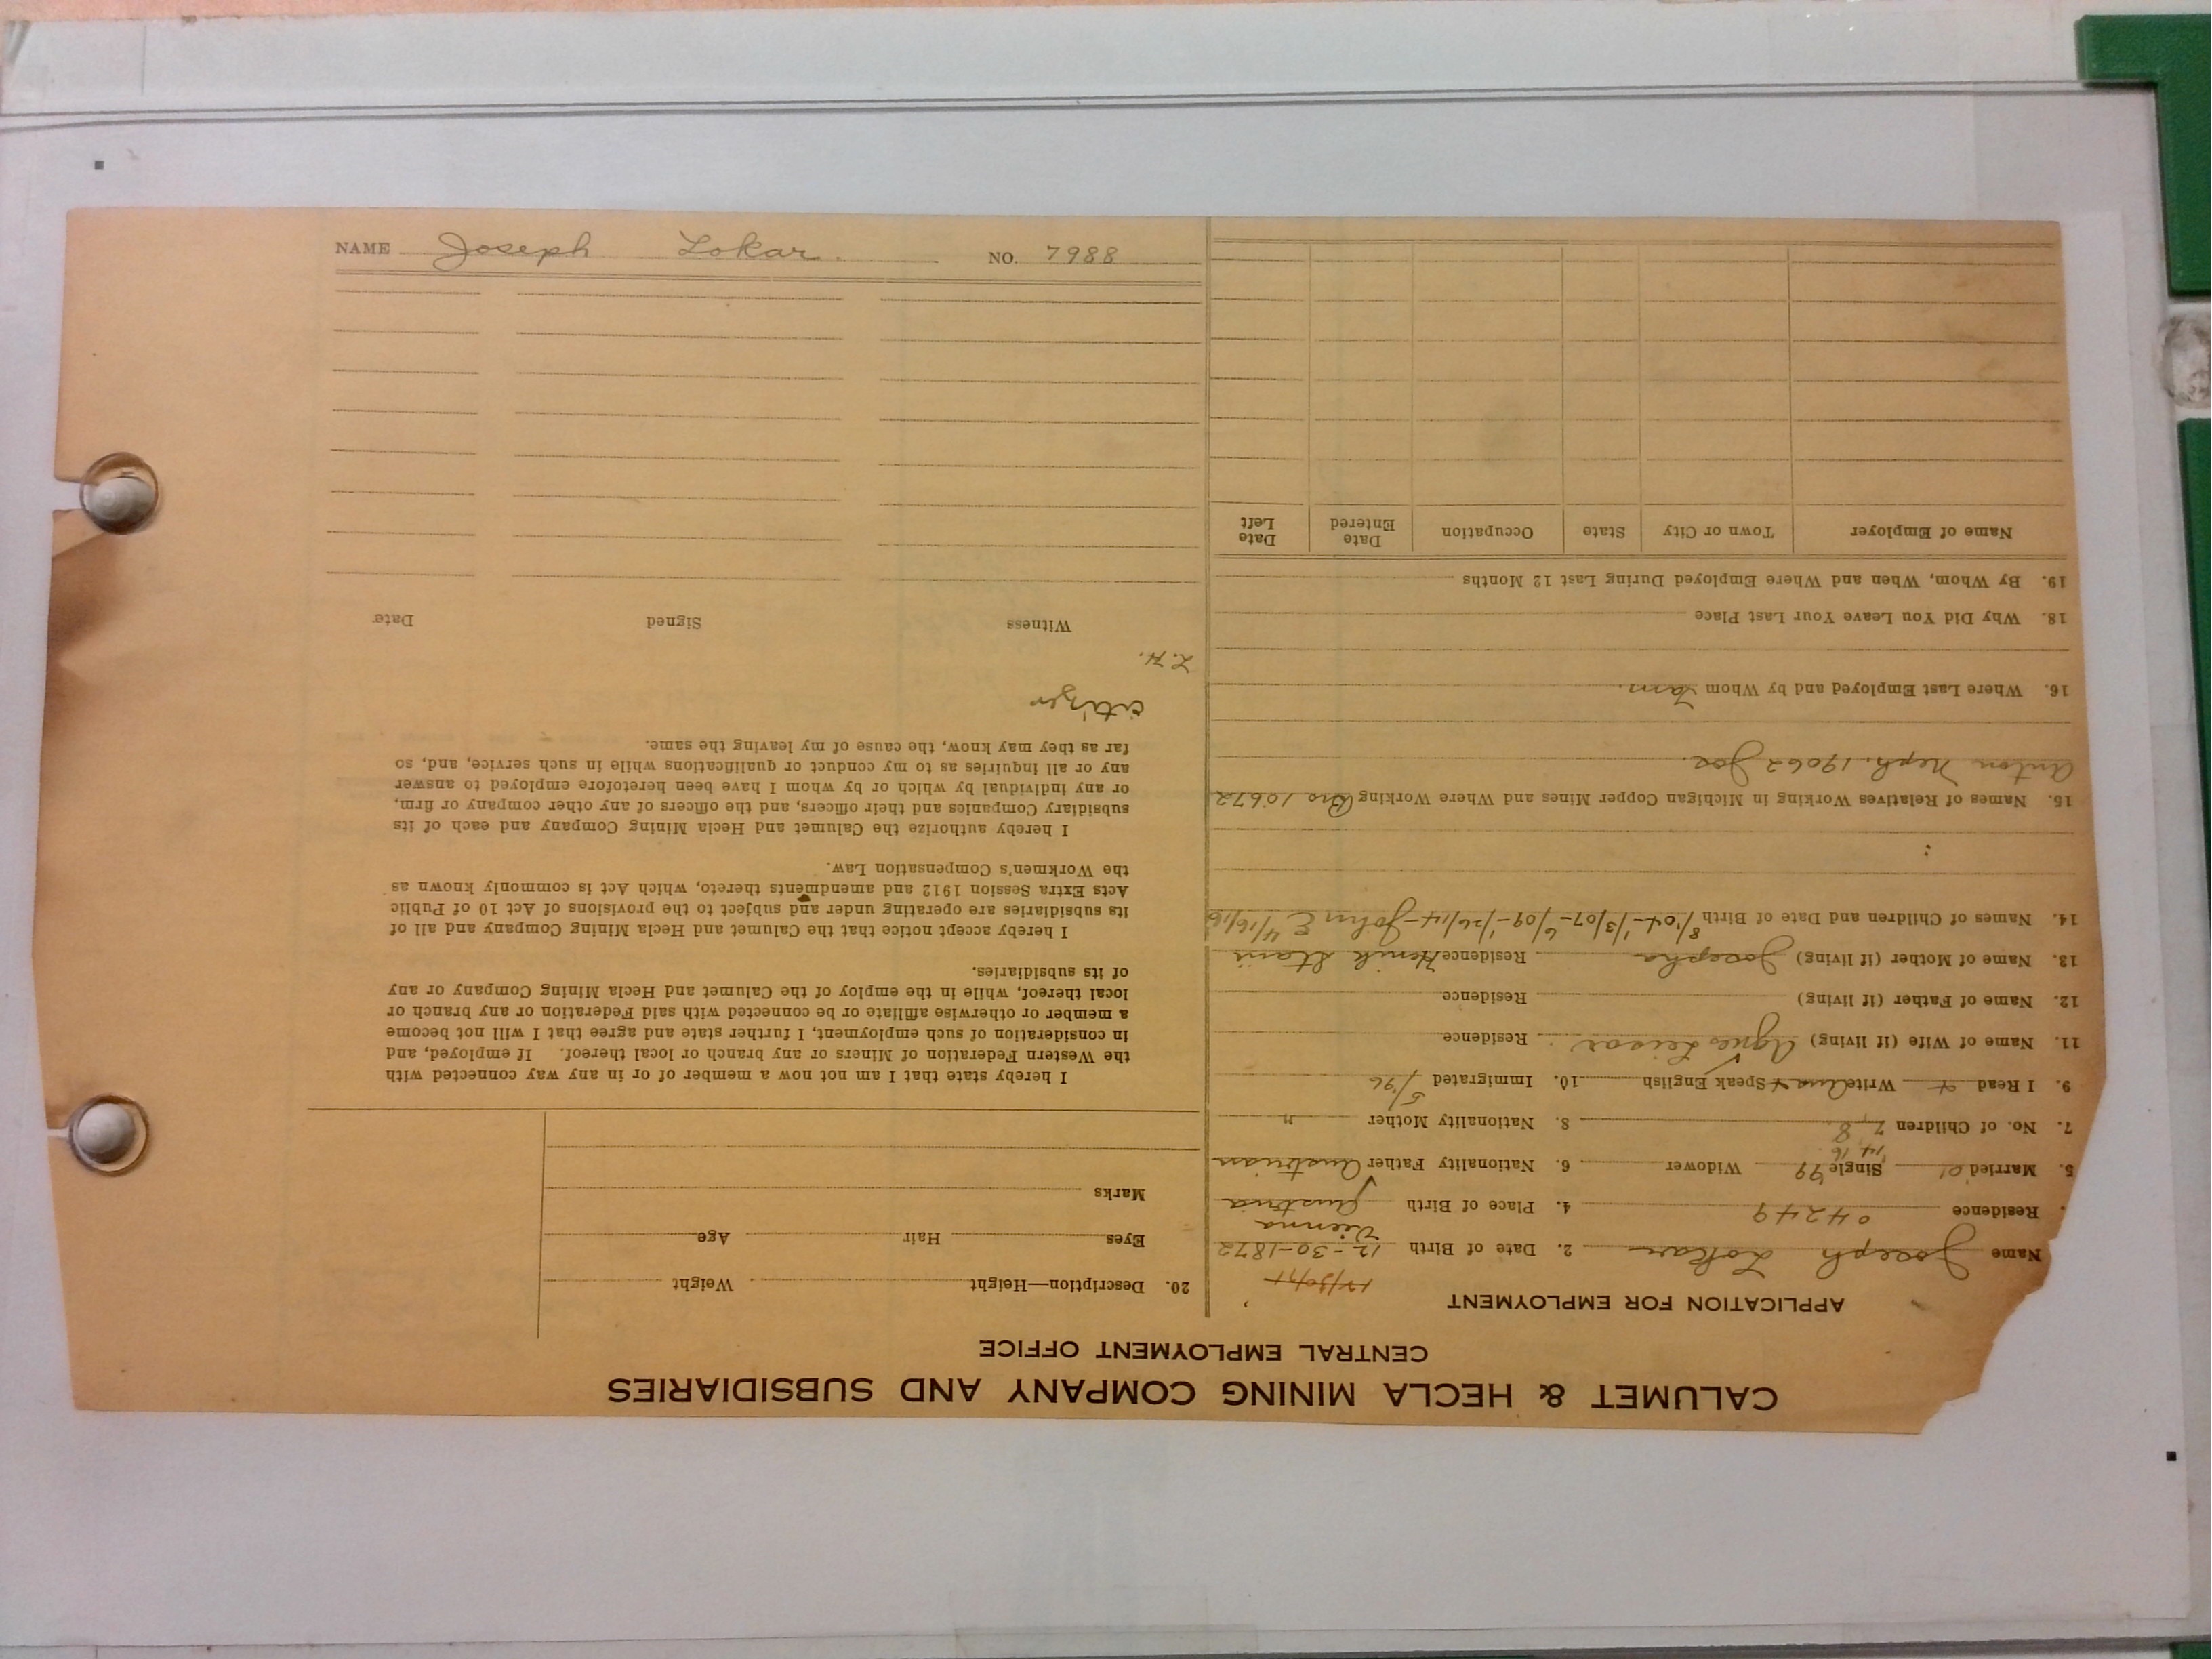 CALUMET & HECLA MINING COMPANY AND SUBSIDIARIES
CENTRAL EMPLOYMENT OFFICE
APPLICATION FOR EMPLOYMENT
12/30/71
Name Joseph Lokar 2. Date of Birth 12-30-1872
Vienna
Residence 04249 4. Place of Birth Austria
5. Married Single 99 Widower 6. Nationality Father Austrian
14 16
7. No. of Children 7 8 8. Nationality Mother "
9. I Read Write Speak English 10. Immigrated 5/96
11. Name of Wife (if living) Agnes Residence
12. Name of Father (if living) Residence
13. Name of Mother (if living) Josepha Residence
14. Names of Children and Date of Birth John E 4/16/16
15. Names of Relatives Working in Michigan Copper Mines and Where Working Bro 10672
Anton Neph. 19062 Joe.
16. Where Last Employed and by Whom Tam.
18. Why Did You Leave Your Last Place
19. By Whom, When and Where Employed During Last 12 Months
Name of Employer Town or City State Occupation Date Entered Date Left
20. Description—Height Weight
Eyes Hair Age
Marks
I hereby state that I am not now a member of or in any way connected with
the Western Federation of Miners or any branch or local thereof. If employed, and
in consideration of such employment, I further state and agree that I will not become
a member or otherwise affiliate or be connected with said Federation or any branch or
local thereof, while in the employ of the Calumet and Hecla Mining Company or any
of its subsidiaries.
I hereby accept notice that the Calumet and Hecla Mining Company and all of
its subsidiaries are operating under and subject to the provisions of Act 10 of Public
Acts Extra Session 1912 and amendments thereto, which Act is commonly known as
the Workmen's Compensation Law.
I hereby authorize the Calumet and Hecla Mining Company and each of its
subsidiary Companies and their officers, and the officers of any other company or firm,
or any individual by which or by whom I have been heretofore employed to answer
any or all inquiries as to my conduct or qualifications while in such service, and, so
far as they may know, the cause of my leaving the same.
citizen
L.H.
Witness Signed Date
NAME Joseph Lokar. NO. 7988